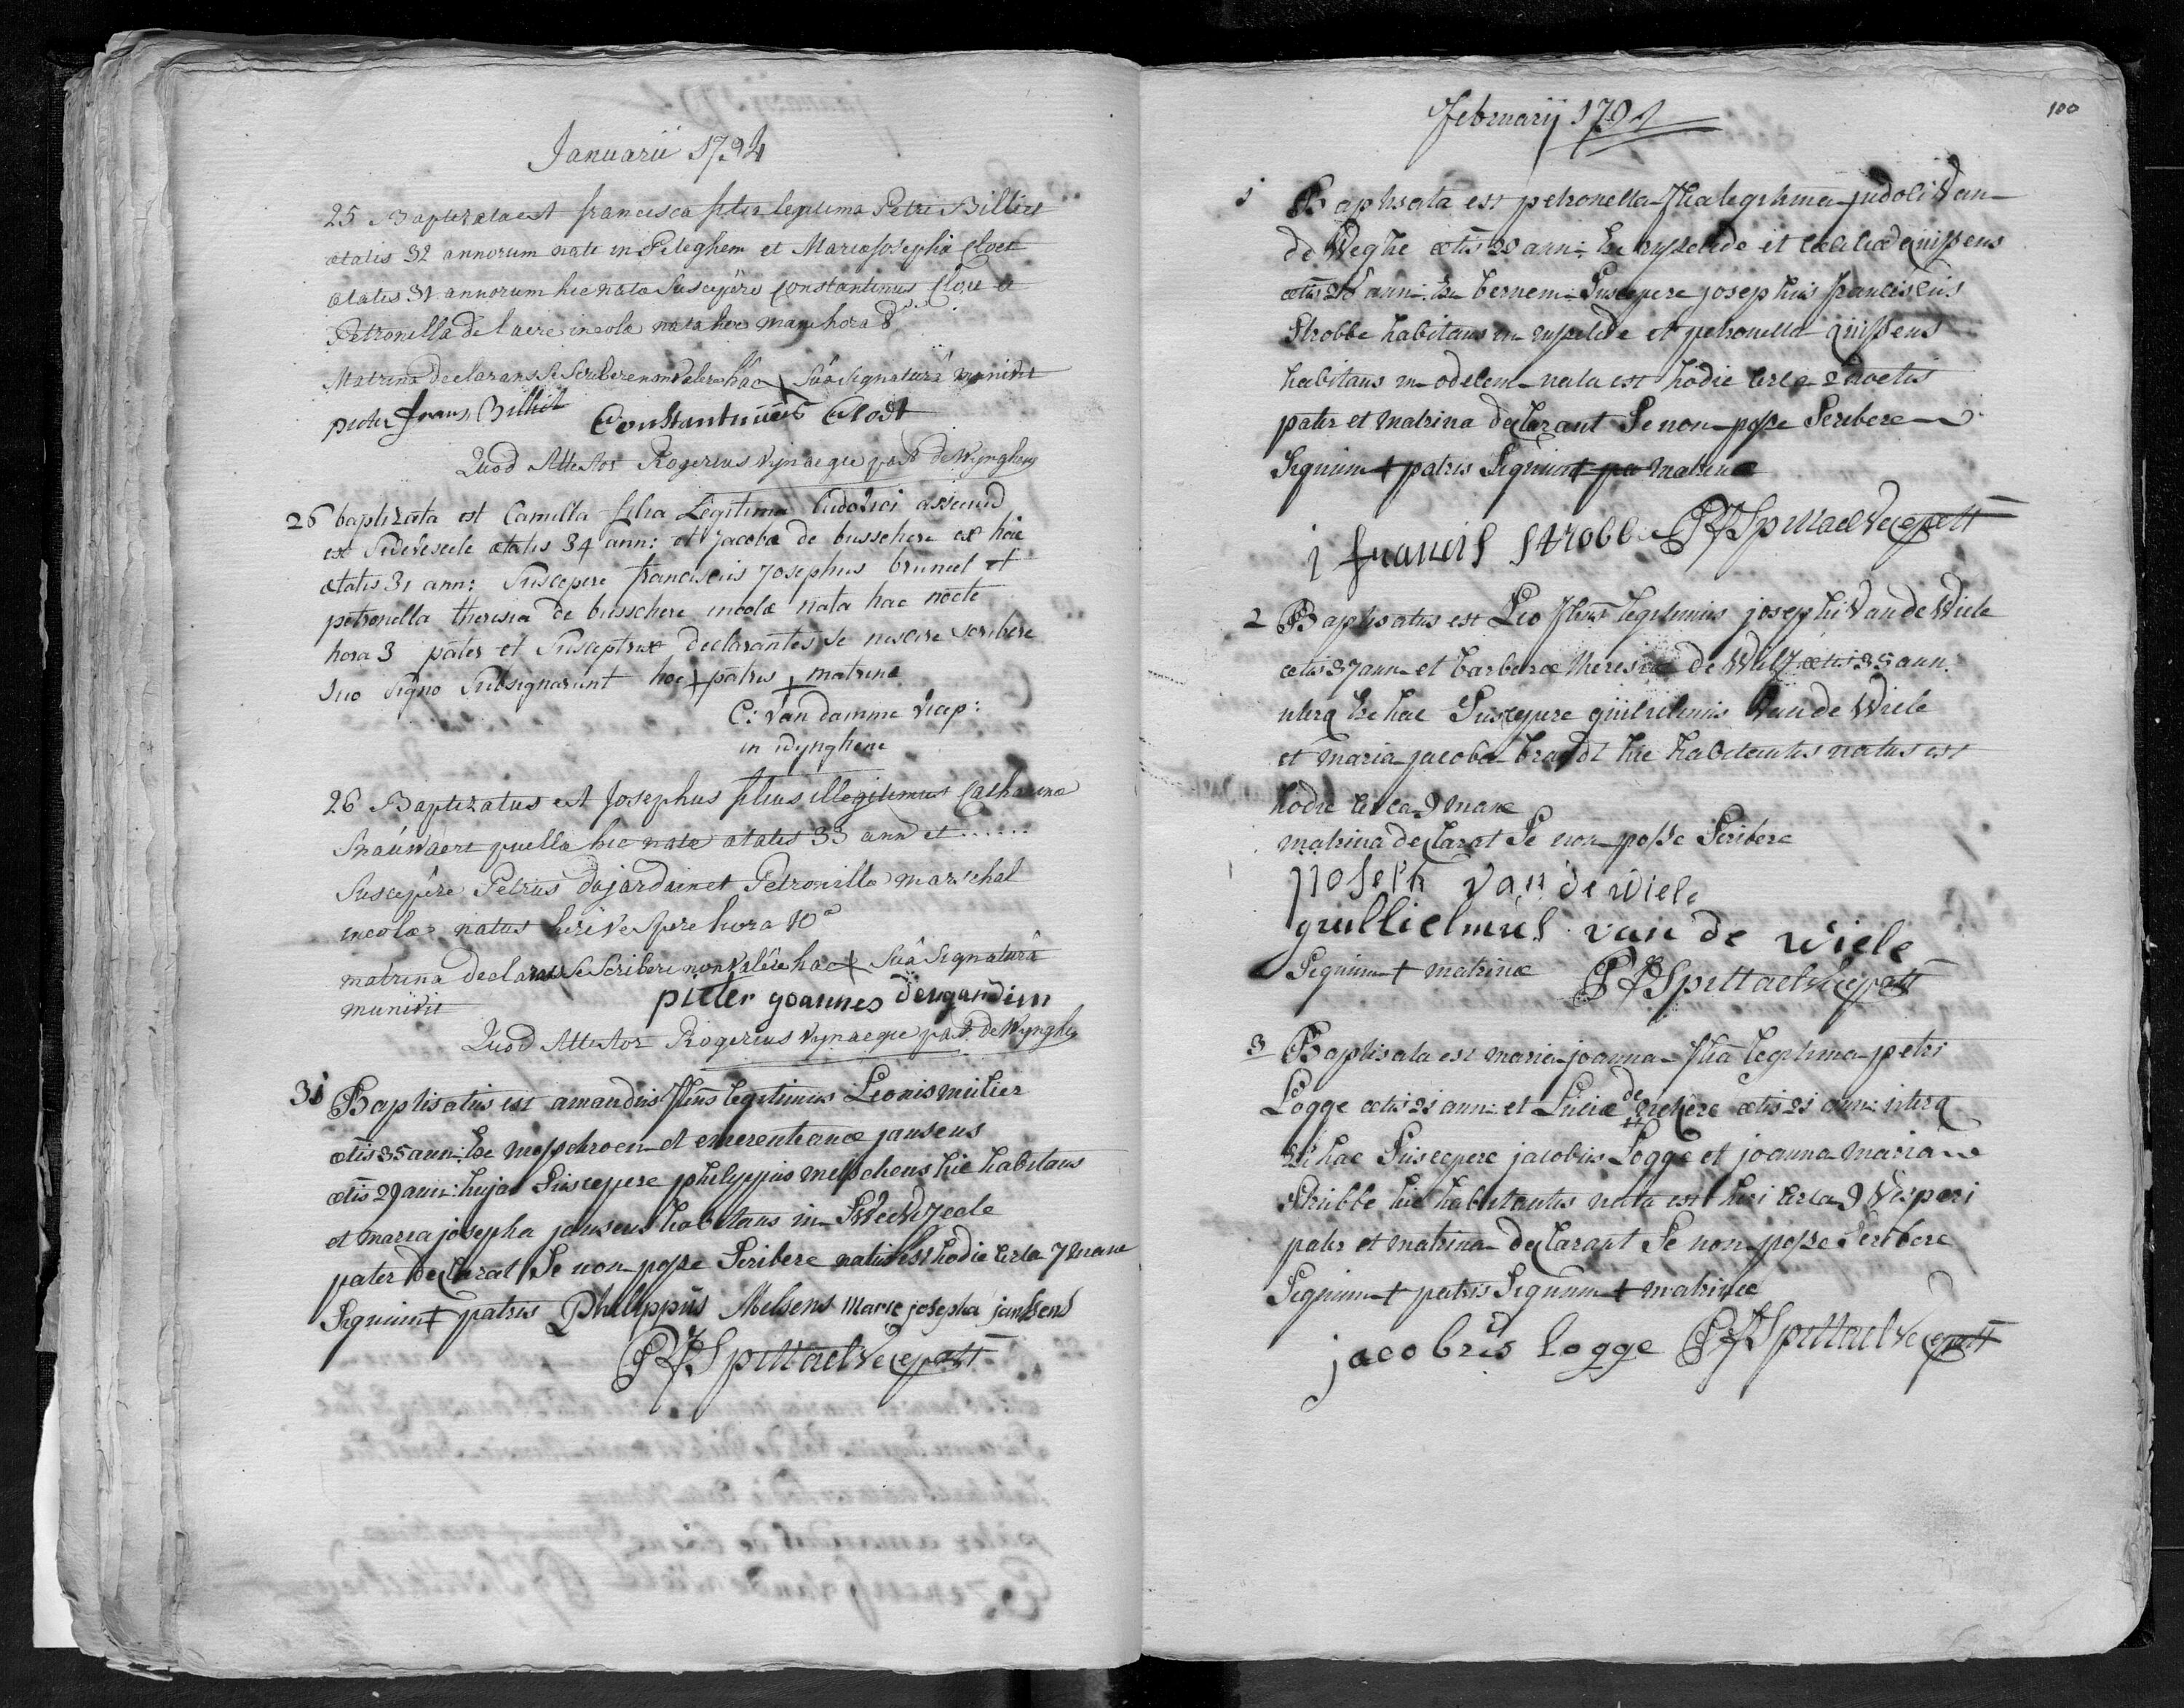 Januarii 1794
25 Baptizata est francisca filia legitima Petri Billiet
ætatis 32 annorum nati in Peteghem et Mariæ Josephæ Cloet
ætatis 31 annorum hic nata Suscepêre Constantinus Cloet et
Petronella de Laere incolæ nata hoc mane hora 8
Matrina declarans se scribere non valere hac + suâ signaturâ munivit
pieter frans Billiet Constantinus Cloet
Quod Attestor Rogerius Vynaegie past. de Wynghene
26 baptizata est Camilla filia Legitima Ludovici
ex ætatis 34 ann: et Jacobæ de busschere ex hac
ætatis 31 ann: Suscepere franciscus Josephus bruneel et
petronella theresia de busschere incolæ nata hac nocte
hora 3 pater et Susceptrix declarantes se nescire scribere
suo signo subsignarunt hoc + patris + matrinæ
C: Van damme vicep:
in wynghene
26 Baptizatus est Josephus filius illegitimus Catharinæ
puella hic nata ætatis 33 ann et ......
Suscepêre Petrus dujardin et Petronilla marschal
incolæ natus heri vespere hora 10ª
matrina declarans se scribere non valêre hac + suâ signaturâ
munivit pieter joannes
Quod Attestor Rogerius Vynaegie past. de Wynghene
31 Baptisatus est amandus filius legitimus Leonis mulier
ætis 35 ann: ex et emerentianæ jansens
ætis 29 ann: huja Suscepere phelyppus melsschens hic habitans
et maria josepha jansens habitans in Swevezeele
pater declarat Se non posse Scribere natus est hodie circa 7 mane
Signum + patris Philippus Melsens marie josepha janssens
PJ Spittael vicepast
100
februarij 1794
1 Baptisata est petronella filia legitima judoci Van
de Weghe ætis ann: ex rysselede et
ætis ann: ex bernem Suscepere josephus franciscus
Strobbe habitans in rysselede et petronella
habitans in odelem nata est hodie circa 2 noctis
pater et matrina declarant Se non posse Scribere
Signum + patris Signum + matrinæ
j francis strobbe PJ Spittael vicepast
2 Baptisatus est Leo filius legitimus josephi Van de Wiele
ætis 37 ann et barbaræ theresiæ de Wilf ætis 35 ann.
uterq ex hac Suscepere guilielmus Van de Wiele
et maria jacoba hic habitantes natus est
hodie circa 9 mane
matrina declarat Se non posse Scribere
joseph van de wiele
guillielmus van de wiele
Signum + matrinæ PJ Spittael vicepast
3 Baptisata est maria joanna filia legitima petri
Logge ætis 21 ann: et Luciæ de ætis 21 ann: uterq
ex hac Suscepere jacobus Logge et joanna maria
Strubbe hic habitantes nata est heri circa 9 Vesperi
pater et matrina declarant Se non posse Scribere
Signum + patris Signum + matrinæ
jacobus Logge PJ Spittael vicepast